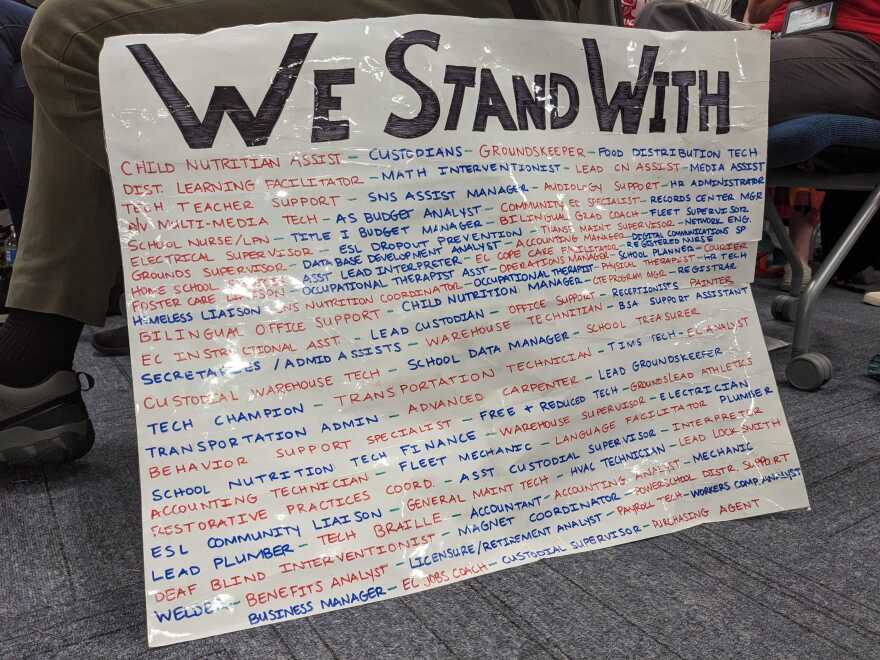 WE STAND WITH
CHILD NUTRITIAN ASSIST - CUSTODIANS - GROUNDSKEEPER - FOOD DISTRIBUTION TECH
DIST. LEARNING FACILITATOR - MATH INTERVENTIONIST - LEAD CN ASSIST - MEDIA ASSIST
TECH TEACHER SUPPORT - SNS ASSIST MANAGER - AUDIOLOGY SUPPORT - HR ADMINISTRATOR
AV MULTI-MEDIA TECH - AS BUDGET ANALYST - COMMUNITY EC SPECIALIST - RECORDS CENTER MGR
SCHOOL NURSE/LPN - TITLE I BUDGET MANAGER - BILINGUAL GRAD COACH - FLEET SUPERVISOR
ELECTRICAL SUPERVISOR - ESL DROPOUT PREVENTION - MAINT SUPERVISOR - NETWORK ENG.
GROUNDS SUPERVISOR - DATA BASE DEVELOPMENT ANALYST - ACCOUNTING MANAGER - DIGITAL COMMUNICATIONS SP
HOME SCHOOL - ASST LEAD INTERPRETER - EC COPE CARE FACILITATOR - REGISTERED NURSE
FOSTER CARE LIAISON - OCCUPATIONAL THERAPIST ASST - OPERATIONS MANAGER - SCHOOL PLANNER - COURIER
HOMELESS LIAISON - SNS NUTRITION COORDINATOR - OCCUPATIONAL THERAPIST - PHYSICAL THERAPIST - HR TECH
BILINGUAL OFFICE SUPPORT - CHILD NUTRITION MANAGER - CTE PROGRAM MGR - REGISTRAR
EC INSTRUCTIONAL ASST - LEAD CUSTODIAN - OFFICE SUPPORT - RECEPTIONISTS PAINTER
SECRETARIES / ADMID ASSISTS - WAREHOUSE TECHNITIAN - BSA SUPPORT ASSISTANT
CUSTODIAL WAREHOUSE TECH - SCHOOL DATA MANAGER - SCHOOL TREASURER
TECH CHAMPION - TRANSPORTATION TECHNICIAN - TIMS TECH - EC ANALYST
TRANSPORTATION ADMIN - ADVANCED CARPENTER - LEAD GROUNDSKEEFER
BEHAVIOR SUPPORT SPECIALIST - FREE + REDUCED TECH - GROUNDSLEAD ATHLETICS
SCHOOL NUTRITION TECH FINANCE - WAREHOUSE SUPERVISOR - ELECTRICIAN
ACCOUNTING TECHNICIAN - FLEET MECHANIC - LANGUAGE FACILITATOR PLUMBER
RESTORATIVE PRACTICES COORD. - ASST CUSTODIAL SUPERVISOR - INTERPRETOR
ESL COMMUNITY LIAISON - GENERAL MAINT TECH - HVAC TECHNICIAN - LEAD LOCK SMITH
LEAD PLUMBER - TECH BRAILLE - ACCOUNTANT - ACCOUNTING ANALYST - MECHANIC
DEAF BLIND INTERVENTIONIST - MAGNET COORDINATOR - POWERSCHOOL DISTR. SUPPORT
WELDER - BENEFITS ANALYST - LICENSURE/RETIREMENT ANALYST - PAYROLL TECH - WORKERS COMP ANALYST
BUSINESS MANAGER - EC JOBS COACH - CUSTODIAL SUPERVISOR - PURCHASING AGENT